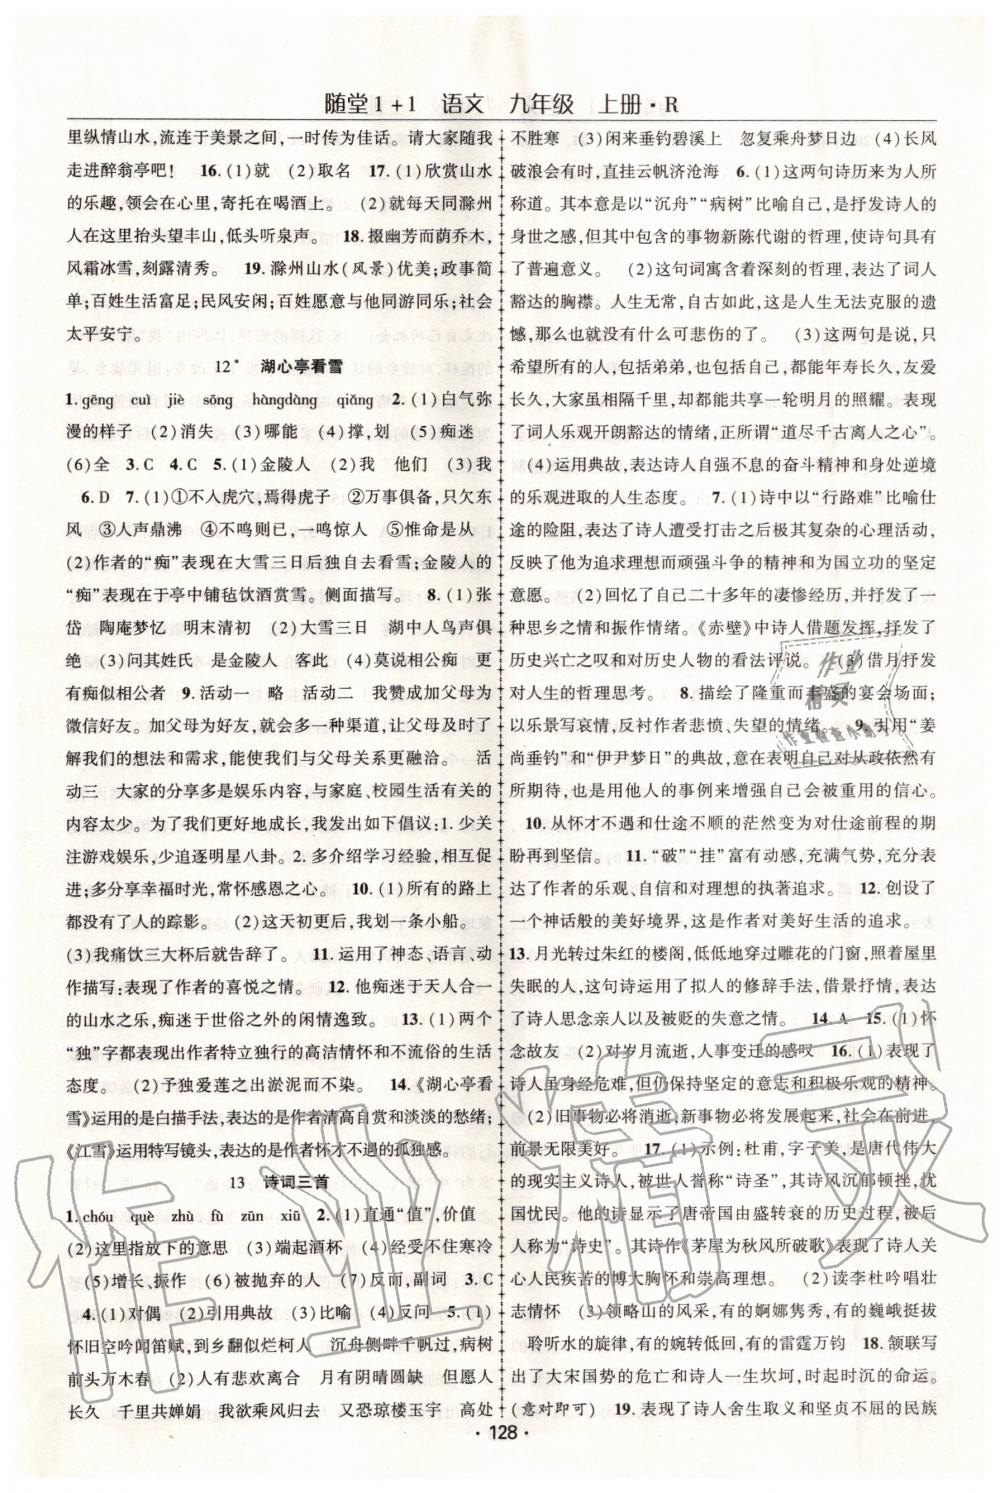 随堂1+1 语文 九年级 上册·R
里纵情山水,流连于美景之间,一时传为佳话。请大家随我
走进醉翁亭吧! 16.(1)就 (2)取名 17.(1)欣赏山水
的乐趣,领会在心里,寄托在喝酒上。 (2)就每天同滁州
人在这里抬头望丰山,低头听泉声。 18.掇幽芳而荫乔木,
风霜冰雪,刻露清秀。 19.滁州山水(风景)优美;政事简
单;百姓生活富足;民风安闲;百姓愿意与他同游同乐;社会
太平安宁。
12* 湖心亭看雪
1.gēng cuì jiè sōng hàngdàng qiǎng 2.(1)白气弥
漫的样子 (2)消失 (3)哪能 (4)撑,划 (5)痴迷
(6)全 3.C 4.C 5.(1)金陵人 (2)我 他们 (3)我
6.D 7.(1)①不入虎穴,焉得虎子 ②万事俱备,只欠东
风 ③人声鼎沸 ④不鸣则已,一鸣惊人 ⑤惟命是从
(2)作者的“痴”表现在大雪三日后独自去看雪;金陵人的
“痴”表现在于亭中铺毡饮酒赏雪。侧面描写。 8.(1)张
岱 陶庵梦忆 明末清初 (2)大雪三日 湖中人鸟声俱
绝 (3)问其姓氏 是金陵人 客此 (4)莫说相公痴 更
有痴似相公者 9.活动一 略 活动二 我赞成加父母为
微信好友。加父母为好友,就会多一种渠道,让父母及时了
解我们的想法和需求,能使我们与父母关系更融洽。 活
动三 大家的分享多是娱乐内容,与家庭、校园生活有关的
内容太少。为了我们更好地成长,我发出如下倡议:1.少关
注游戏娱乐,少追逐明星八卦。2.多介绍学习经验,相互促
进;多分享幸福时光,常怀感恩之心。 10.(1)所有的路上
都没有了人的踪影。 (2)这天初更后,我划一条小船。
(3)我痛饮三大杯后就告辞了。 11.运用了神态、语言、动
作描写;表现了作者的喜悦之情。 12.他痴迷于天人合一
的山水之乐,痴迷于世俗之外的闲情逸致。 13.(1)两个
“独”字都表现出作者特立独行的高洁情怀和不流俗的生活
态度。 (2)予独爱莲之出淤泥而不染。 14.《湖心亭看
雪》运用的是白描手法,表达的是作者清高自赏和淡淡的愁绪;
《江雪》运用特写镜头,表达的是作者怀才不遇的孤独感。
13 诗词三首
1.chóu què zhù fù zūn xiū 2.(1)直通“值”,价值
(2)这里指放下的意思 (3)端起酒杯 (4)经受不住寒冷
(5)增长、振作 (6)被抛弃的人 (7)反而,副词 3.C
4.(1)对偶 (2)引用典故 (3)比喻 (4)反问 5.(1)
怀旧空吟闻笛赋,到乡翻似烂柯人 沉舟侧畔千帆过,病树
前头万木春 (2)人有悲欢离合 月有阴晴圆缺 但愿人
长久 千里共婵娟 我欲乘风归去 又恐琼楼玉宇 高处
不胜寒 (3)闲来垂钓碧溪上 忽复乘舟梦日边 (4)长风
破浪会有时,直挂云帆济沧海 6.(1)这两句诗历来为人所
称道。其本意是以“沉舟”“病树”比喻自己,是抒发诗人的
身世之感,但其中包含的事物新陈代谢的哲理,使诗句具有
了普遍意义。 (2)这句词寓含着深刻的哲理,表达了词人
豁达的胸襟。人生无常,自古如此,这是人生无法克服的遗
憾,那么也就没有什么可悲伤的了。 (3)这两句是说:只
希望所有的人,包括弟弟,也包括自己,都能年寿长久,友爱
长久,大家虽相隔千里,却都能共享一轮明月的照耀。表现
了词人乐观开朗豁达的情绪,正所谓“道尽千古离人之心”。
(4)运用典故,表达诗人自强不息的奋斗精神和身处逆境
的乐观进取的人生态度。 7.(1)诗中以“行路难”比喻仕
途的险阻,表达了诗人遭受打击之后极其复杂的心理活动,
反映了他为追求理想而顽强斗争的精神和为国立功的坚定
意愿。 (2)回忆了自己二十多年的凄惨经历,并抒发了一
种思乡之情和振作情绪。《赤壁》中诗人借题发挥,抒发了对
历史兴亡之叹和对历史人物的看法评说。 (3)借月抒发
对人生的哲理思考。 8.描绘了隆重而丰盛的宴会场面;
以乐景写哀情,反衬作者悲愤、失望的情绪。 9.引用“姜
尚垂钓”和“伊尹梦日”的典故,表明诗人自己对从政依然有
所期待,他是想借用他人的事例来增强自己会被重用的信心。
10.从怀才不遇和仕途不顺的茫然变为对仕途前程的期
盼再到坚信。 11.“破”“挂”富有动感,充满气势,充分表
达了作者的乐观、自信和对理想的执著追求。 12.创设了
一个神话般的美好境界,这是作者对美好生活的追求。
13.月光转过朱红的楼阁,低低地穿过雕花的门窗,照着屋里
失眠的人,这几句运用了拟人的修辞手法,伴有想象,表达
了诗人思念亲人以及被贬的失意之情。 14.A 15.(1)怀
念故友 (2)对岁月流逝,人事变迁的感叹 16.(1)表现了
诗人虽身经危难,但仍保持坚定的意志和积极乐观的精神。
(2)旧事物必将消逝,新事物必将发展起来,社会在前进,
前景无限美好。 17.(1)示例:杜甫,字子美,是唐代伟大
的现实主义诗人,被世人尊称为“诗圣”,其诗风沉郁顿挫,忧
国忧民。他的诗显示了唐帝国由盛转衰的历史过程,被后
人称为“诗史”。其诗作《茅屋为秋风所破歌》表现了诗人关
心人民疾苦的博大胸怀和崇高理想。 (2)读李杜吟唱壮
志情怀 (3)领略山的风采,有的婀娜隽秀,有的巍峨挺拔
聆听水的旋律,有的婉转低回,有的雷霆万钧 18.颔联写
出了大宋国势的危亡和诗人一生坎坷,时时起时消的命运。
(意对即可) 19.表现了诗人舍生取义和坚贞不屈的民族
·128·
作业精灵